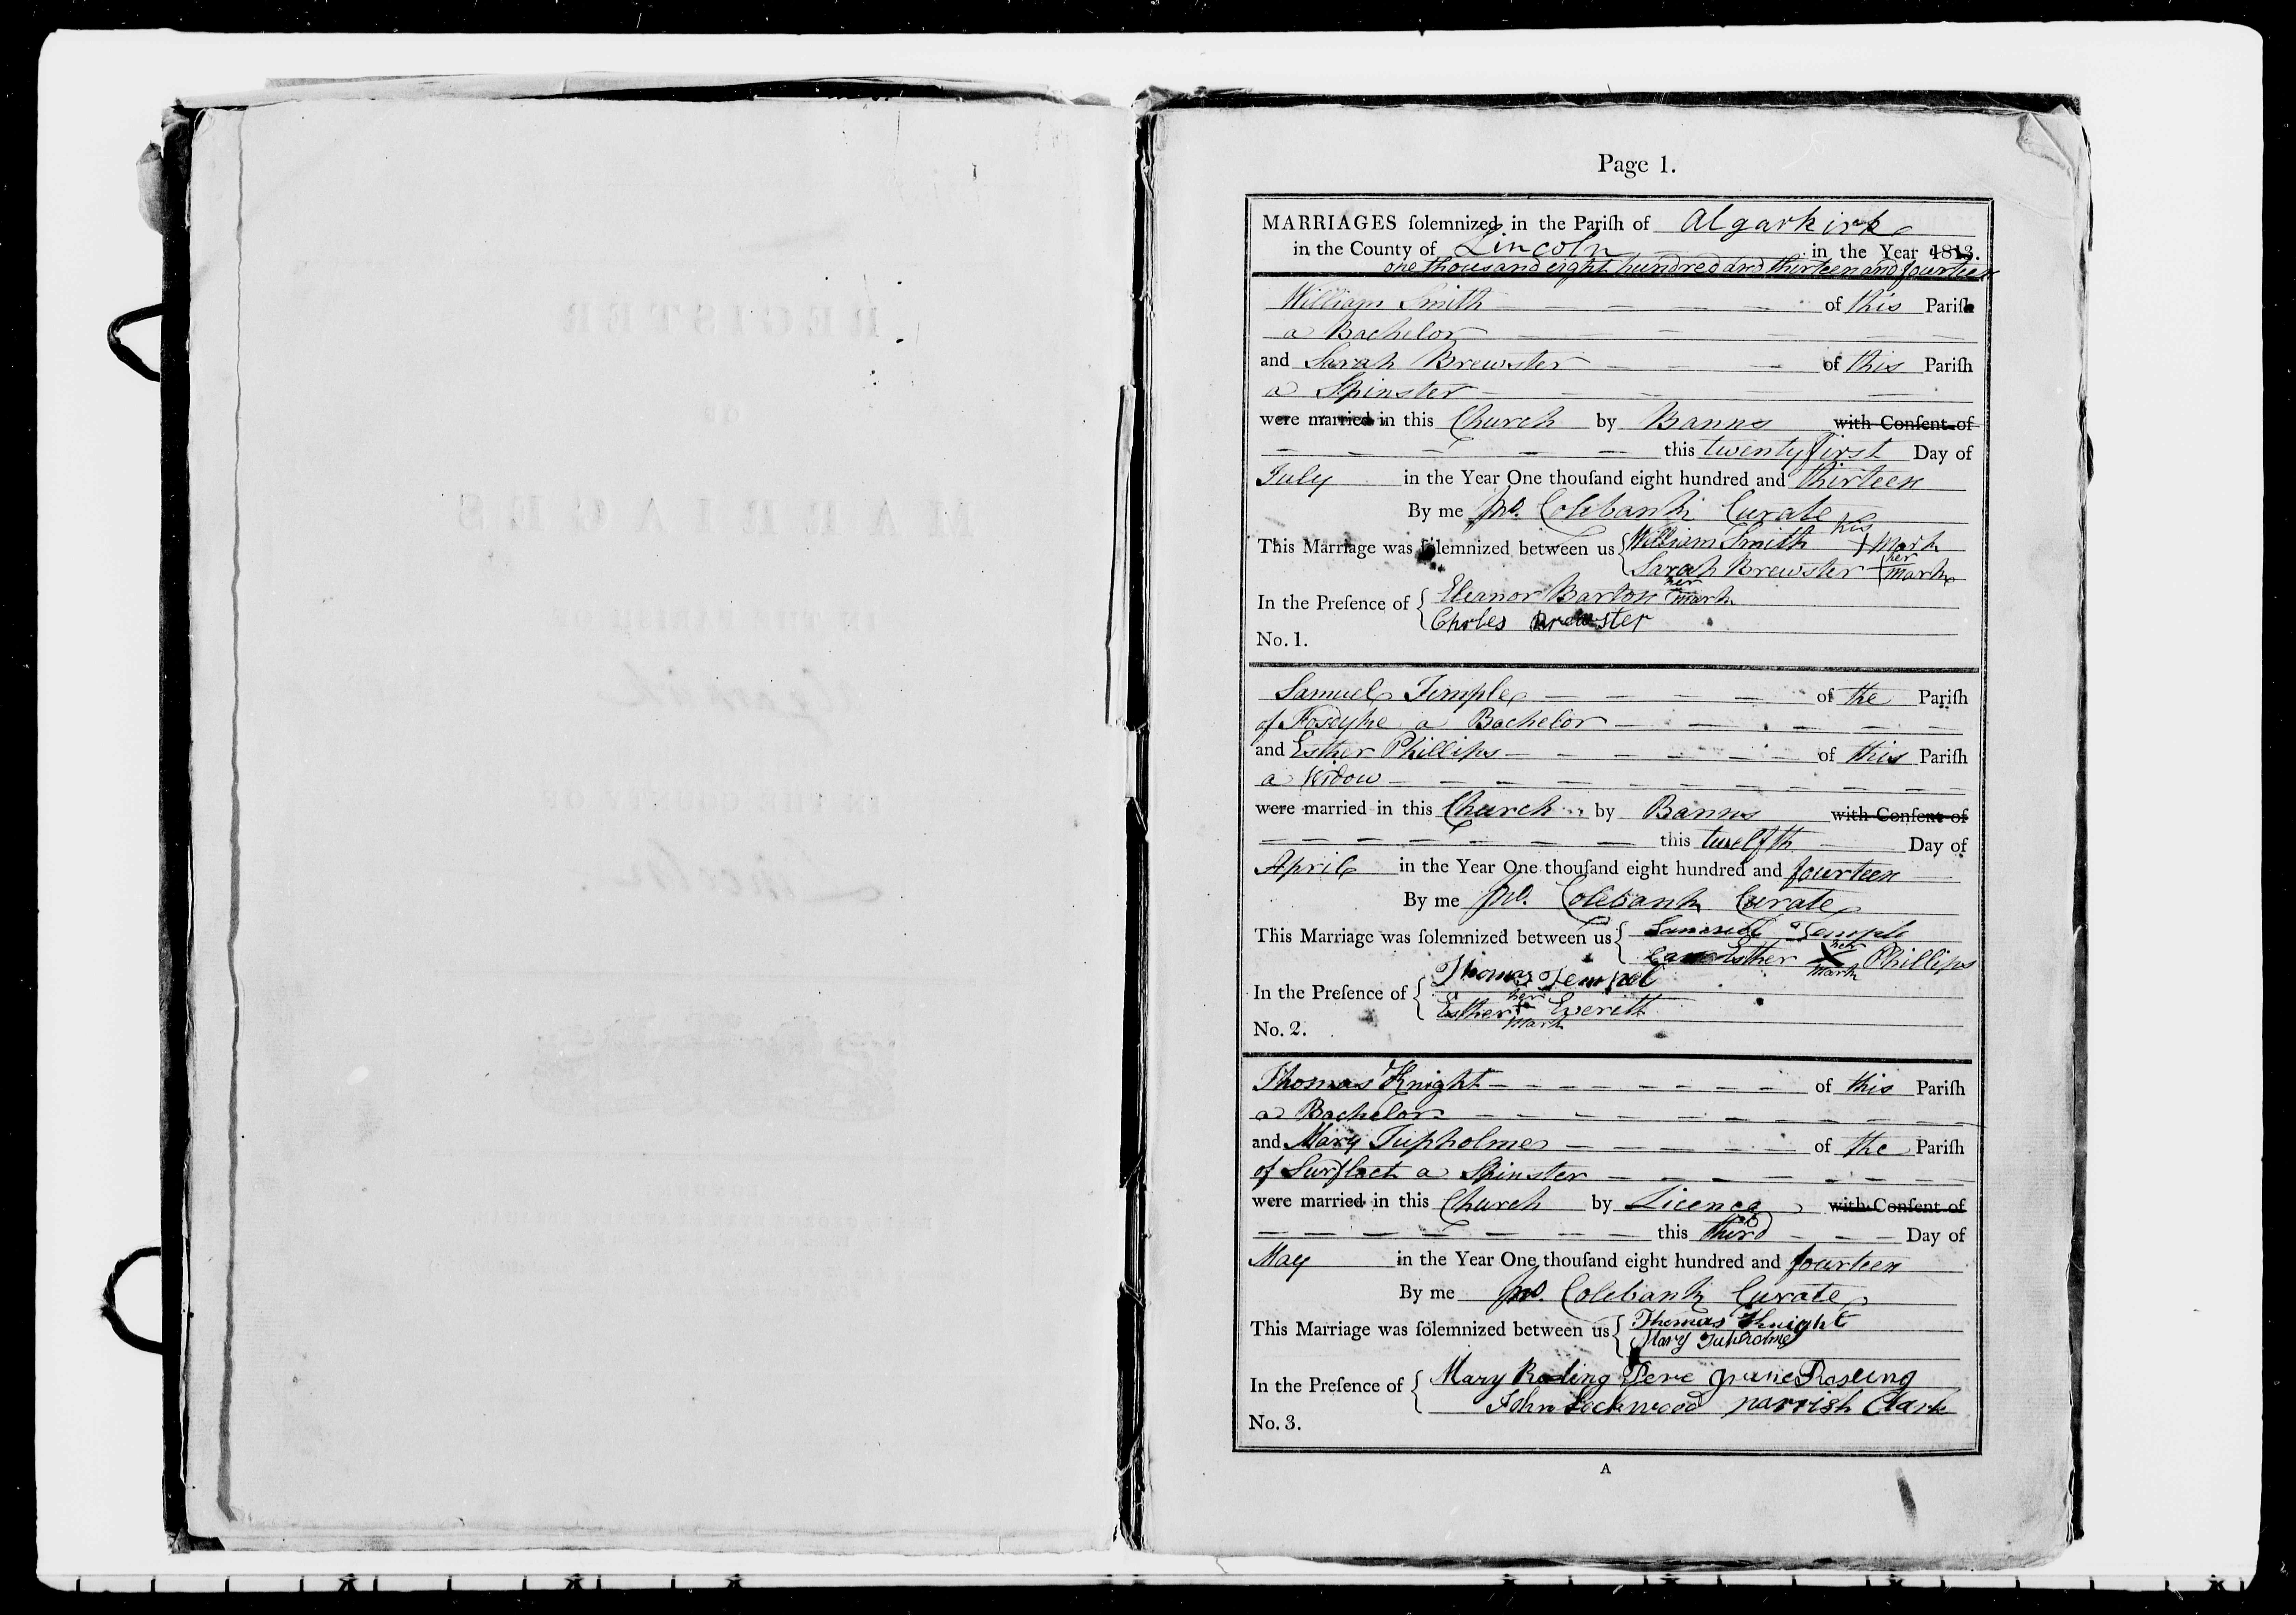 Page 1.
MARRIAGES ſolemnized in the Pariſh of Algarkirk
in the County of Lincoln in the Year 1813.
one thousand eight hundred and thirteen and fourteen
William Smith of this Pariſh
a Bachelor
and Sarah Brewster of this Pariſh
a Spinster
were married in this Church by Banns with Conſent of
this twenty first Day of
July in the Year One thouſand eight hundred and thirteen
By me Jno. Colebank Curate
This Marriage was ſolemnized between us William Smith his + Mark
Sarah Brewster her + mark
In the Preſence of Eleanor Barton her mark
Charles Brewster
No. 1.
Samuel Temple of the Pariſh
of Fosdyke a Bachelor
and Esther Phillips of this Pariſh
a Widow
were married in this Church by Banns with Conſent of
this twelfth Day of
April in the Year One thouſand eight hundred and fourteen
By me Jno. Colebank Curate
This Marriage was ſolemnized between us Samuel Temple
Esther her X mark Phillips
In the Preſence of Thomas Tempel
Esther her + mark Everitt
No. 2.
Thomas Knight of this Pariſh
a Bachelor
and Mary Tupholme of the Pariſh
of Surfleet a Spinster
were married in this Church by Licence with Conſent of
this third Day of
May in the Year One thouſand eight hundred and fourteen
By me Jno. Colebank Curate
This Marriage was ſolemnized between us Thomas Knight
Mary Tupholme
In the Preſence of Mary Jane Rosling
John Lockwood parrish Clark
No. 3.
A